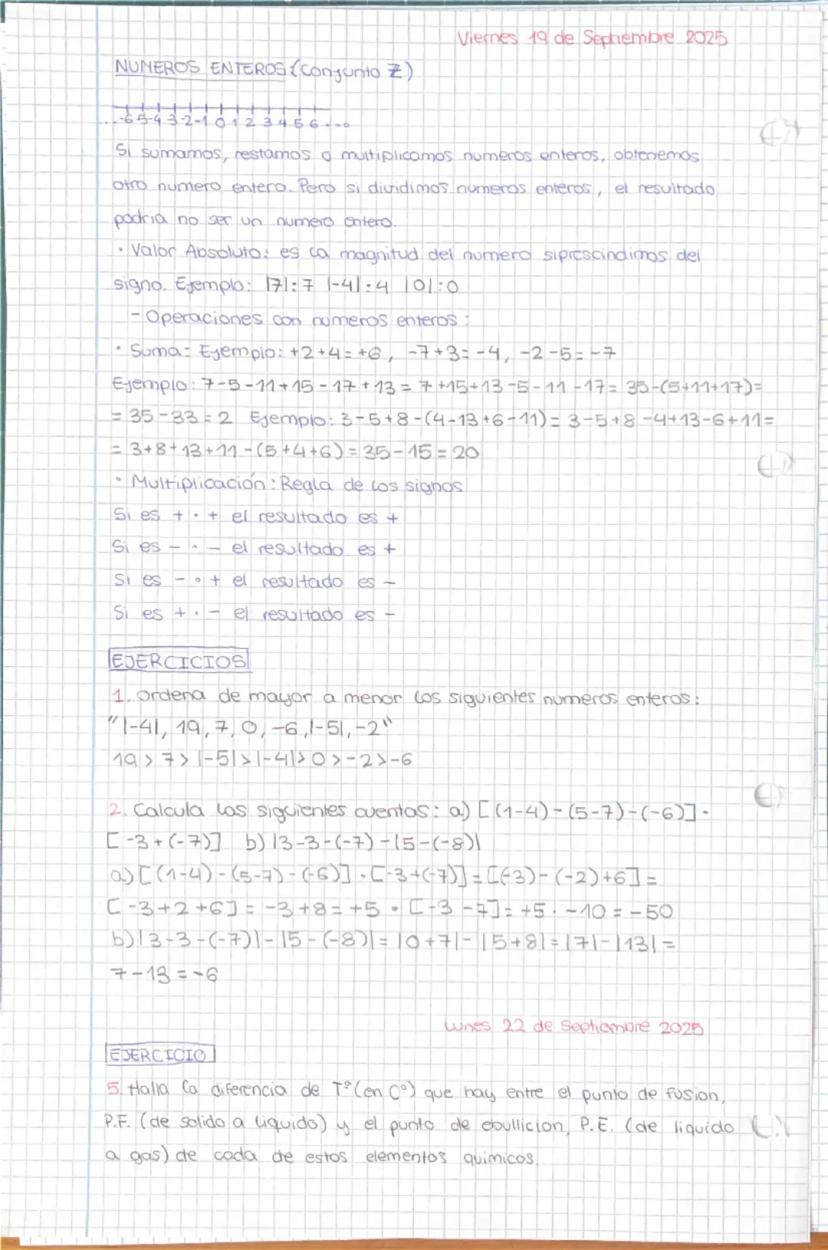 Viernes 19 de Septiembre 2025
NUMEROS ENTEROS (Conjunto Z)
...-6 5-4 3-2-1 0 1 2 3 4 5 6 ...
Si sumamos, restamos o multiplicamos numeros enteros, obtenemos
otro numero entero. Pero si dividimos numeros enteros, el resultado
podria no ser un numero entero.
· Valor Absoluto: es la magnitud del numero si prescindimos del
signo. Ejemplo: |7|:7 |-4|:4 |0|:0
- Operaciones con numeros enteros:
· Suma= Ejemplo: +2+4=+6, -7+3=-4, -2-5=-7
Ejemplo: 7-5-11+15-17+13= 7+15+13-5-11-17= 35-(5+11+17)=
= 35-33=2 Ejemplo: 3-5+8-(4-13+6-11)= 3-5+8-4+13-6+11=
= 3+8+13+11-(5+4+6)=35-15=20
· Multiplicación: Regla de los signos
Si es + · + el resultado es +
Si es - · - el resultado es +
Si es - · + el resultado es -
Si es + · - el resultado es -
EJERCICIOS
1. Ordena de mayor a menor los siguientes numeros enteros:
"|-4|, 19, 7, 0, -6, |-5|, -2"
19 > 7 > |-5| > |-4| > 0 > -2 > -6
2. Calcula las siguientes cuentas: a) [(1-4)-(5-7)-(-6)]·
[-3+(-7)] b) |3-3-(-7)-|5-(-8)|
a) [(1-4)-(5-7)-(-6)]·[-3+(-7)]=[(-3)-(-2)+6]=
[-3+2+6]=-3+8=+5 · [-3-7]=+5·-10=-50
b) |3-3-(-7)|-|5-(-8)|=|0+7|-|5+8|=|7|-|13|=
7-13=-6
Lunes 22 de Septiembre 2025
EJERCICIO
5. Halla la diferencia de Tº (en Cº) que hay entre el punto de fusion,
P.F. (de solido a liquido) y el punto de ebullicion, P.E. (de liquido
a gas) de cada de estos elementos quimicos.